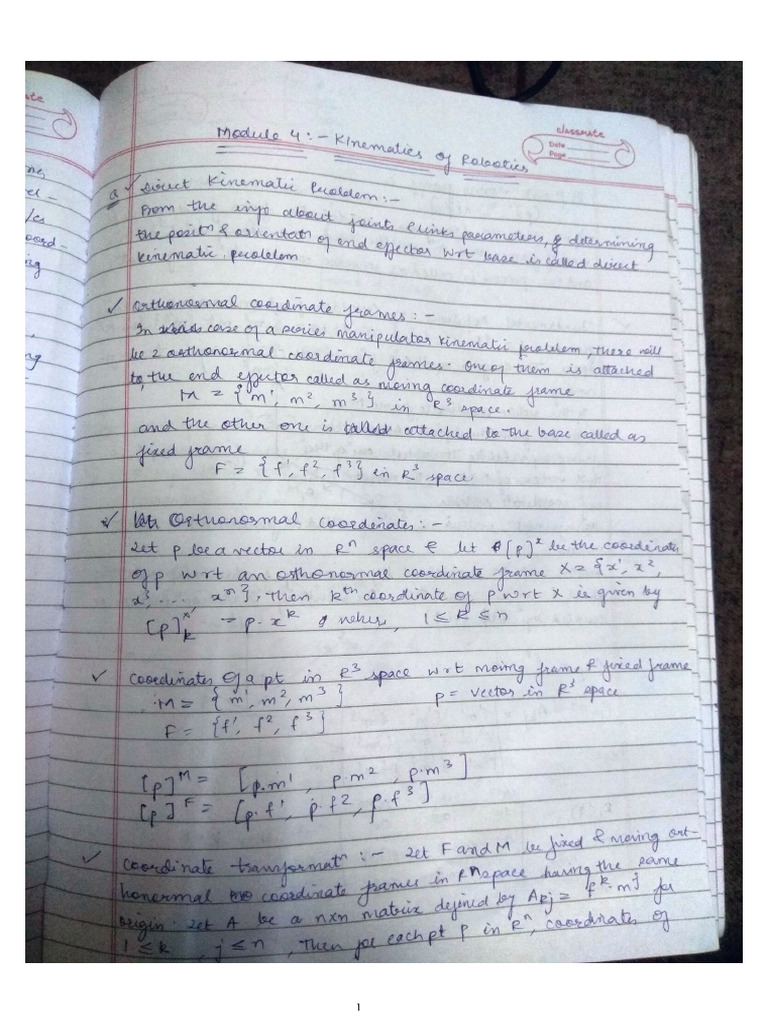 Module 4 :- Kinematics of Robotics
classmate
Date
Page
Direct Kinematic Problem :-
From the info about joints & links parameters, determining
the positⁿ & orientatⁿ of end effector wrt base is called direct
kinematic problem
Orthonormal coordinate frames :-
In case of a series manipulator kinematic problem, there will
be 2 orthonormal coordinate frames. One of them is attached
to the end effector called as moving coordinate frame
M = {m¹, m², m³} in R³ space.
and the other one is attached to the base called as
fixed frame
F = {f¹, f², f³} in R³ space
Orthonormal coordinates :-
Let p be a vector in Rⁿ space & let [p]ˣ be the coordinates
of p wrt an orthonormal coordinate frame X = {x¹, x²,
x³, .... xⁿ}, then kᵗʰ coordinate of p wrt X is given by
[p]ₖˣ = p·xᵏ , 1 ≤ k ≤ n
Coordinates of a pt in R³ space wrt moving frame & fixed frame
M = {m¹, m², m³} p = vector in R³ space
F = {f¹, f², f³}
[p]ᴹ = [p.m¹, p.m², p.m³]
[p]ꟳ = [p.f¹, p.f2, p.f³]
Coordinate transformatⁿ :- Let F and M be fixed & moving ort-
honormal coordinate frames in Rⁿ space having the same
origin. Let A be a nxn matrix defined by Akj = fᵏ. mʲ for
1 ≤ k, j ≤ n, Then for each pt p in Rⁿ, coordinates of
1